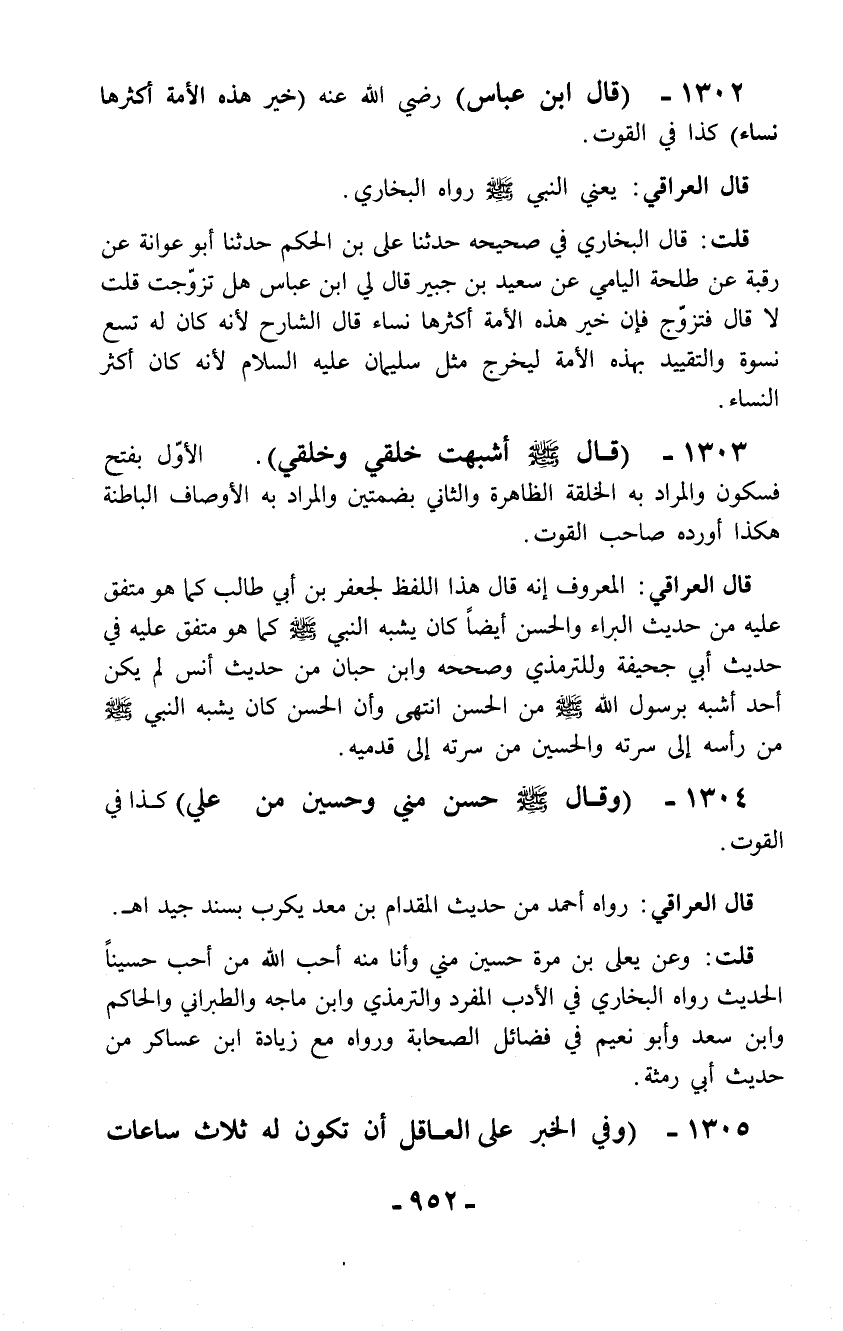 ١٣٠٢ - (قال ابن عباس) رضي الله عنه (خير هذه الأمة أكثرها
نساء) كذا في القوت.
قال العراقي: يعني النبي ﷺ رواه البخاري.
قلت: قال البخاري في صحيحه حدثنا على بن الحكم حدثنا أبو عوانة عن
رقبة عن طلحة اليامي عن سعيد بن جبير قال لي ابن عباس هل تزوّجت قلت
لا قال فتزوّج فإن خير هذه الأمة أكثرها نساء قال الشارح لأنه كان له تسع
نسوة والتقييد بهذه الأمة ليخرج مثل سليمان عليه السلام لأنه كان أكثر
النساء.
١٣٠٣ - (قـال ﷺ أشبهت خلقي وخلقي). الأوّل بفتح
فسكون والمراد به الخلقة الظاهرة والثاني بضمتين والمراد به الأوصاف الباطنة
هكذا أورده صاحب القوت.
قال العراقي: المعروف إنه قال هذا اللفظ لجعفر بن أبي طالب كما هو متفق
عليه من حديث البراء والحسن أيضاً كان يشبه النبي ﷺ كما هو متفق عليه في
حديث أبي جحيفة وللترمذي وصححه وابن حبان من حديث أنس لم يكن
أحد أشبه برسول الله ﷺ من الحسن انتهى وأن الحسن كان يشبه النبي ﷺ
من رأسه إلى سرته والحسين من سرته إلى قدميه.
١٣٠٤ - (وقـال ﷺ حسن مني وحسين من علي) كـذا في
القوت.
قال العراقي: رواه أحمد من حديث المقدام بن معد يكرب بسند جيد اهـ.
قلت: وعن يعلى بن مرة حسين مني وأنا منه أحب الله من أحب حسيناً
الحديث رواه البخاري في الأدب المفرد والترمذي وابن ماجه والطبراني والحاكم
وابن سعد وأبو نعيم في فضائل الصحابة ورواه مع زيادة ابن عساكر من
حديث أبي رمثة.
١٣٠٥ - (وفي الخبر على العـاقل أن تكون له ثلاث ساعات
- ٩٥٢ -